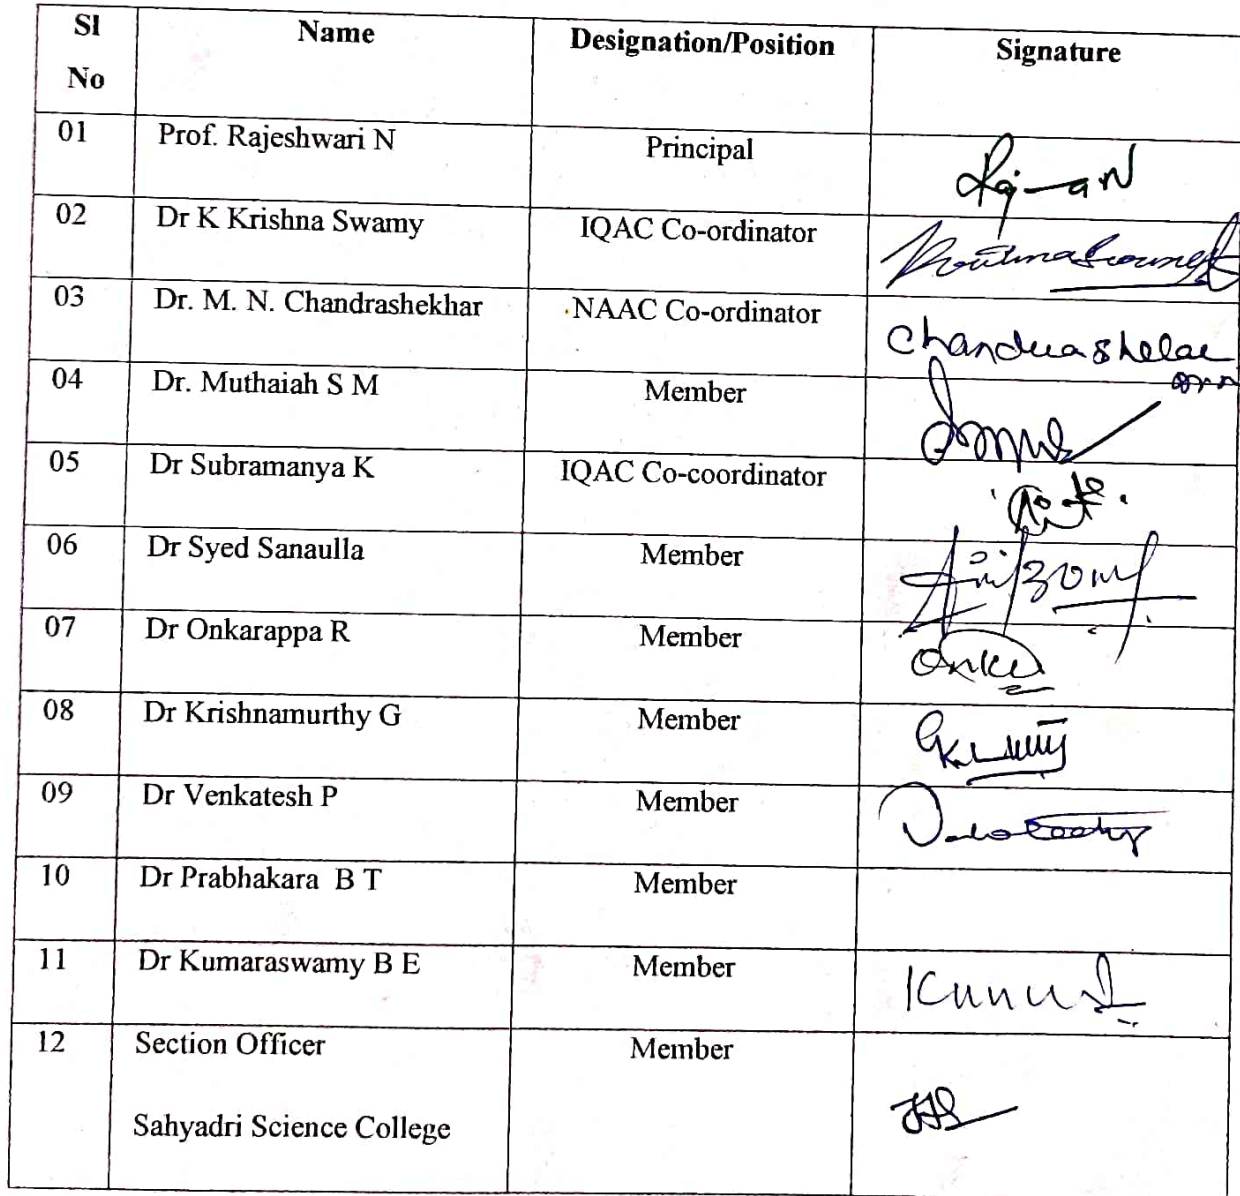 Sl No Name Designation/Position Signature
01 Prof. Rajeshwari N Principal
02 Dr K Krishna Swamy IQAC Co-ordinator
03 Dr. M. N. Chandrashekhar NAAC Co-ordinator Chandrashekar
04 Dr. Muthaiah S M Member
05 Dr Subramanya K IQAC Co-coordinator
06 Dr Syed Sanaulla Member
07 Dr Onkarappa R Member
08 Dr Krishnamurthy G Member
09 Dr Venkatesh P Member
10 Dr Prabhakara B T Member
11 Dr Kumaraswamy B E Member
12 Section Officer Member
Sahyadri Science College